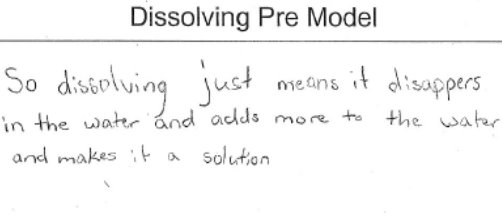 Dissolving Pre Model
So dissolving just means it disappers
in the water and adds more to the water
and makes it a solution